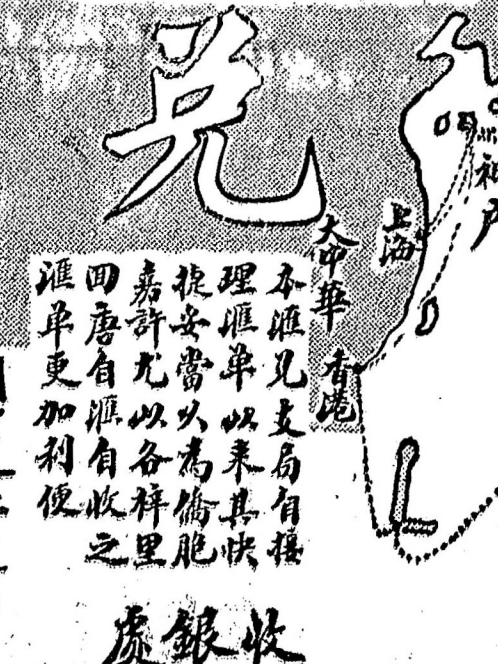 兌
神戶
上海
大中華
香港
本滙兌支局自接
理滙單以來其快
捷妥當以為僑胞
嘉許尤以各梓里
回唐自滙自收之
滙單更加利便
收銀處